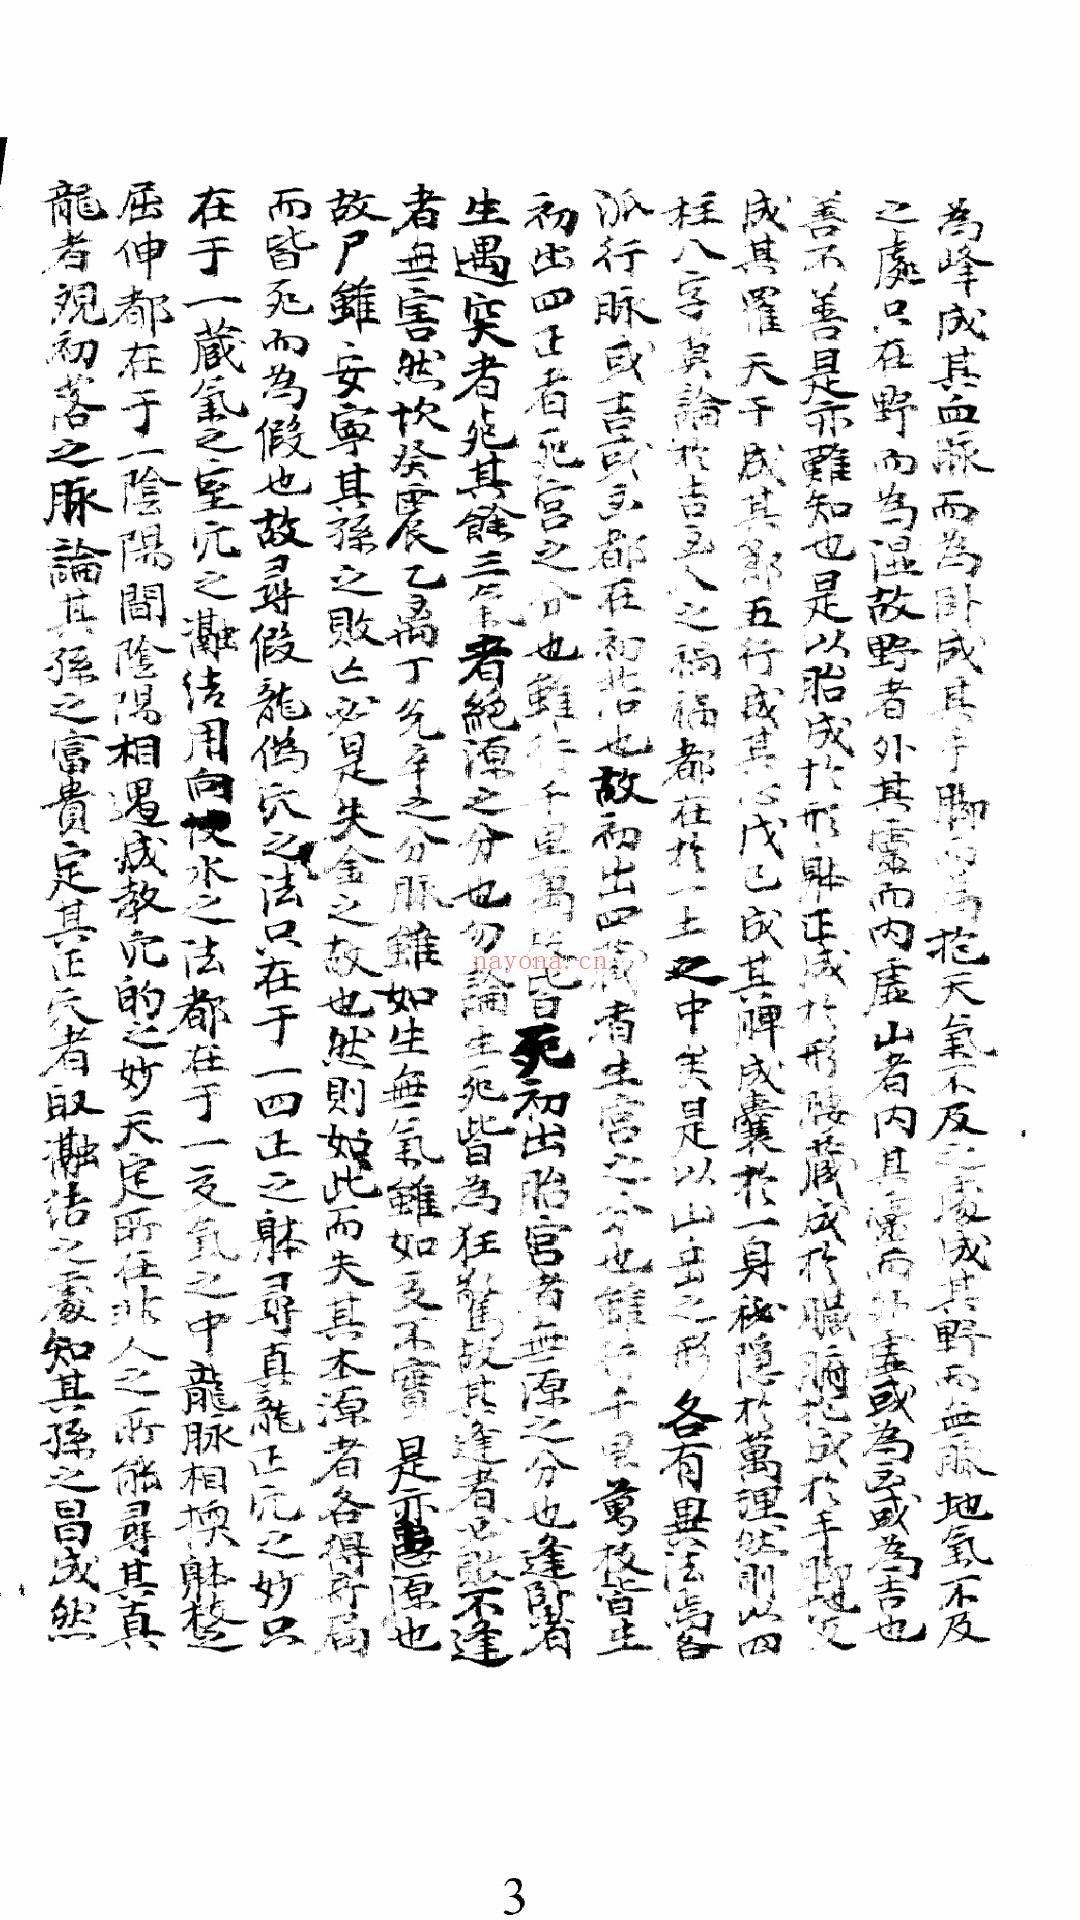 為峰成其血脉而為卧成其手脚而為抱天氣不及之處成其野而無脉地氣不及
之處只在野而為湿故野者外其靈而内虚山者内其靈而外虚或為凶或為吉也
善不善是亦難知也是以胎成於形躰正成於形腰藏成於臟腑抱成於手脚
成其罷天干成其郡五行成其心戊己成其脾成囊於一身秘隠於萬理然則以四
柱八字莫論於吉凶人之禍福都在於一土之中矣是以山岳之形各有異法尚各
派行脉或吉或凶都在初也故初出四藏者生宫之分也雖行千里萬枝皆生
初出四正者死宫之分也雖行千里萬枝皆死初出胎宫者無源之分也逢卧者
生遇突者死其餘三氣者絶源之分也勿論生死皆為狂驚故其逢者必敗不逢
者無害然坎癸震乙离丁兊辛之分脉雖如生無氣雖如支不實是亦源也
故尸雖安寧其孫之敗亡必是失金之故也然則如此而失其本源者各得所局
而皆死而為假也故尋假龍偽穴之法只在于一四正之躰尋真龍正穴之妙只
在于一藏氣之室穴之瀜結用向水之法都在于一支氣之中龍脉相換躰
屈伸都在于一陰陽間陰陽相遇成教穴的之妙天定所在非人之所能尋其真
龍者視初落之脉論其孫之富貴定其正穴者取瀜结之處知其孫之昌成然
nayona.cn
3